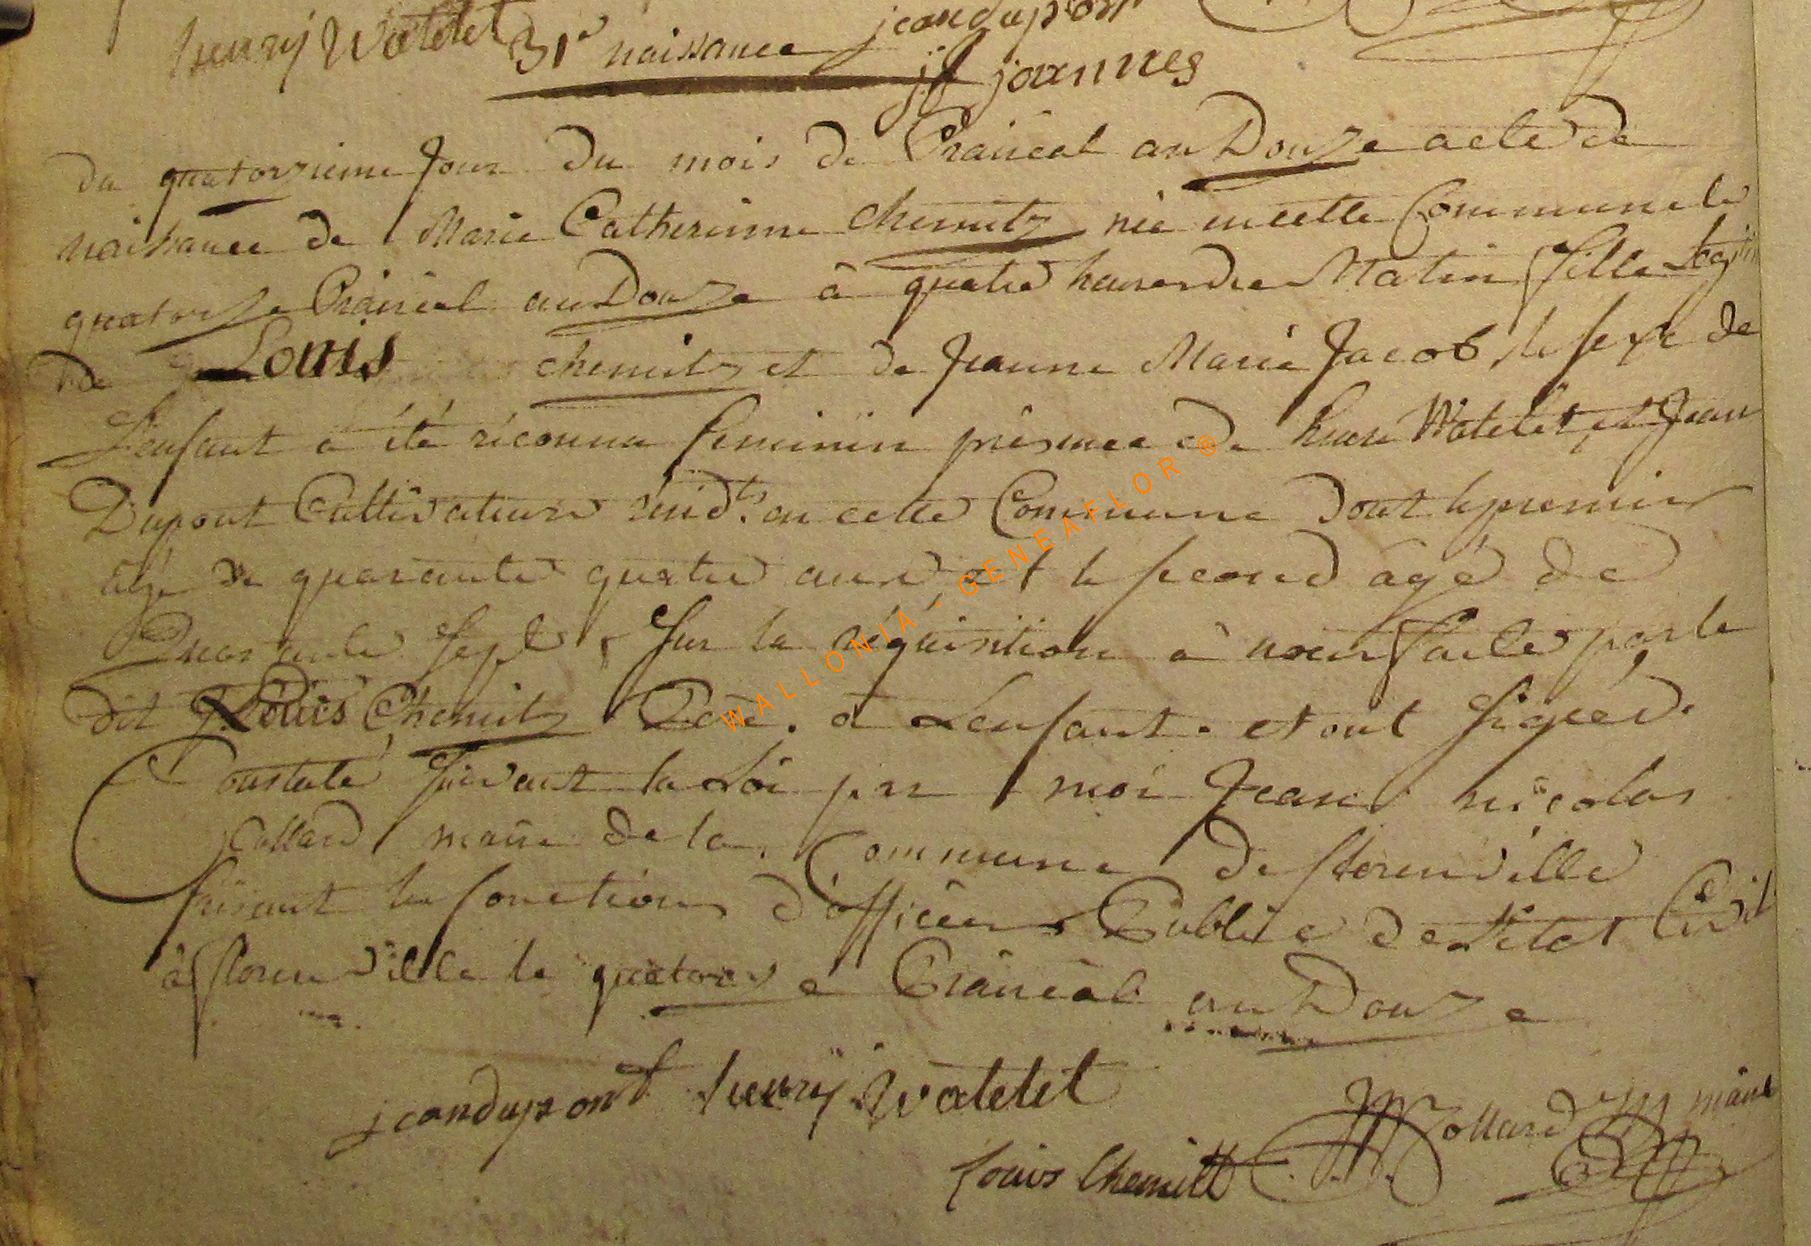 henrÿ Watelet 31e naissance jeandupont
jf joannes
du quatorzieme Jour du mois de Prairéal an Douze acte de
naissance de Marie Catherinne Chemitz née en cette Commune le
quatorze Prairéal an Douze à quatre heures du Matin, fille Legit
de Louis chemitz et de Jeanne Marie Jacob, le sexe de
L'enfant à été réconnu feminin présence de henri Watelet, et Jean
Dupont Cultivateurs resid.ts en cette Commune Dont le premier
agé de quarante quatre ans, et le second agé de
Quarante sept, sur la réquisition à nous faite par le
dit Louis Chemitz Pere à L'enfant. et ont signés.
Constaté suivant la Loi par moi Jean nicolas
Collard maire de la Commune de florenville
faisant les fonctions d'officier Public de L'Etat Civil
à florenville le quatorze Prairéal an Douze
jeandupont henrÿ Watelet
Collard maire
Louis Chemitt
WALLONIA-GENEAFLOR ®